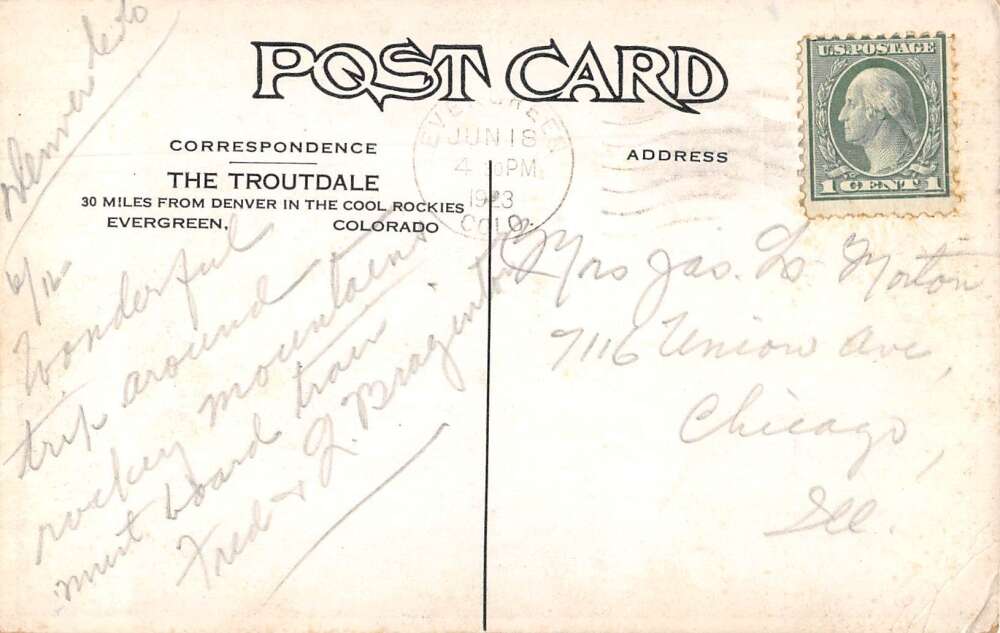 POST CARD
CORRESPONDENCE
THE TROUTDALE
30 MILES FROM DENVER IN THE COOL ROCKIES
EVERGREEN, COLORADO
ADDRESS
U.S. POSTAGE
1 CENT 1
JUN 18
4 PM
1923
COLO.
Denver Colo
Wonderful
trip around
rocky mountains
must board train
Fred &
Mrs Jas. Morton
7116 Union Ave,
Chicago,
Ill.